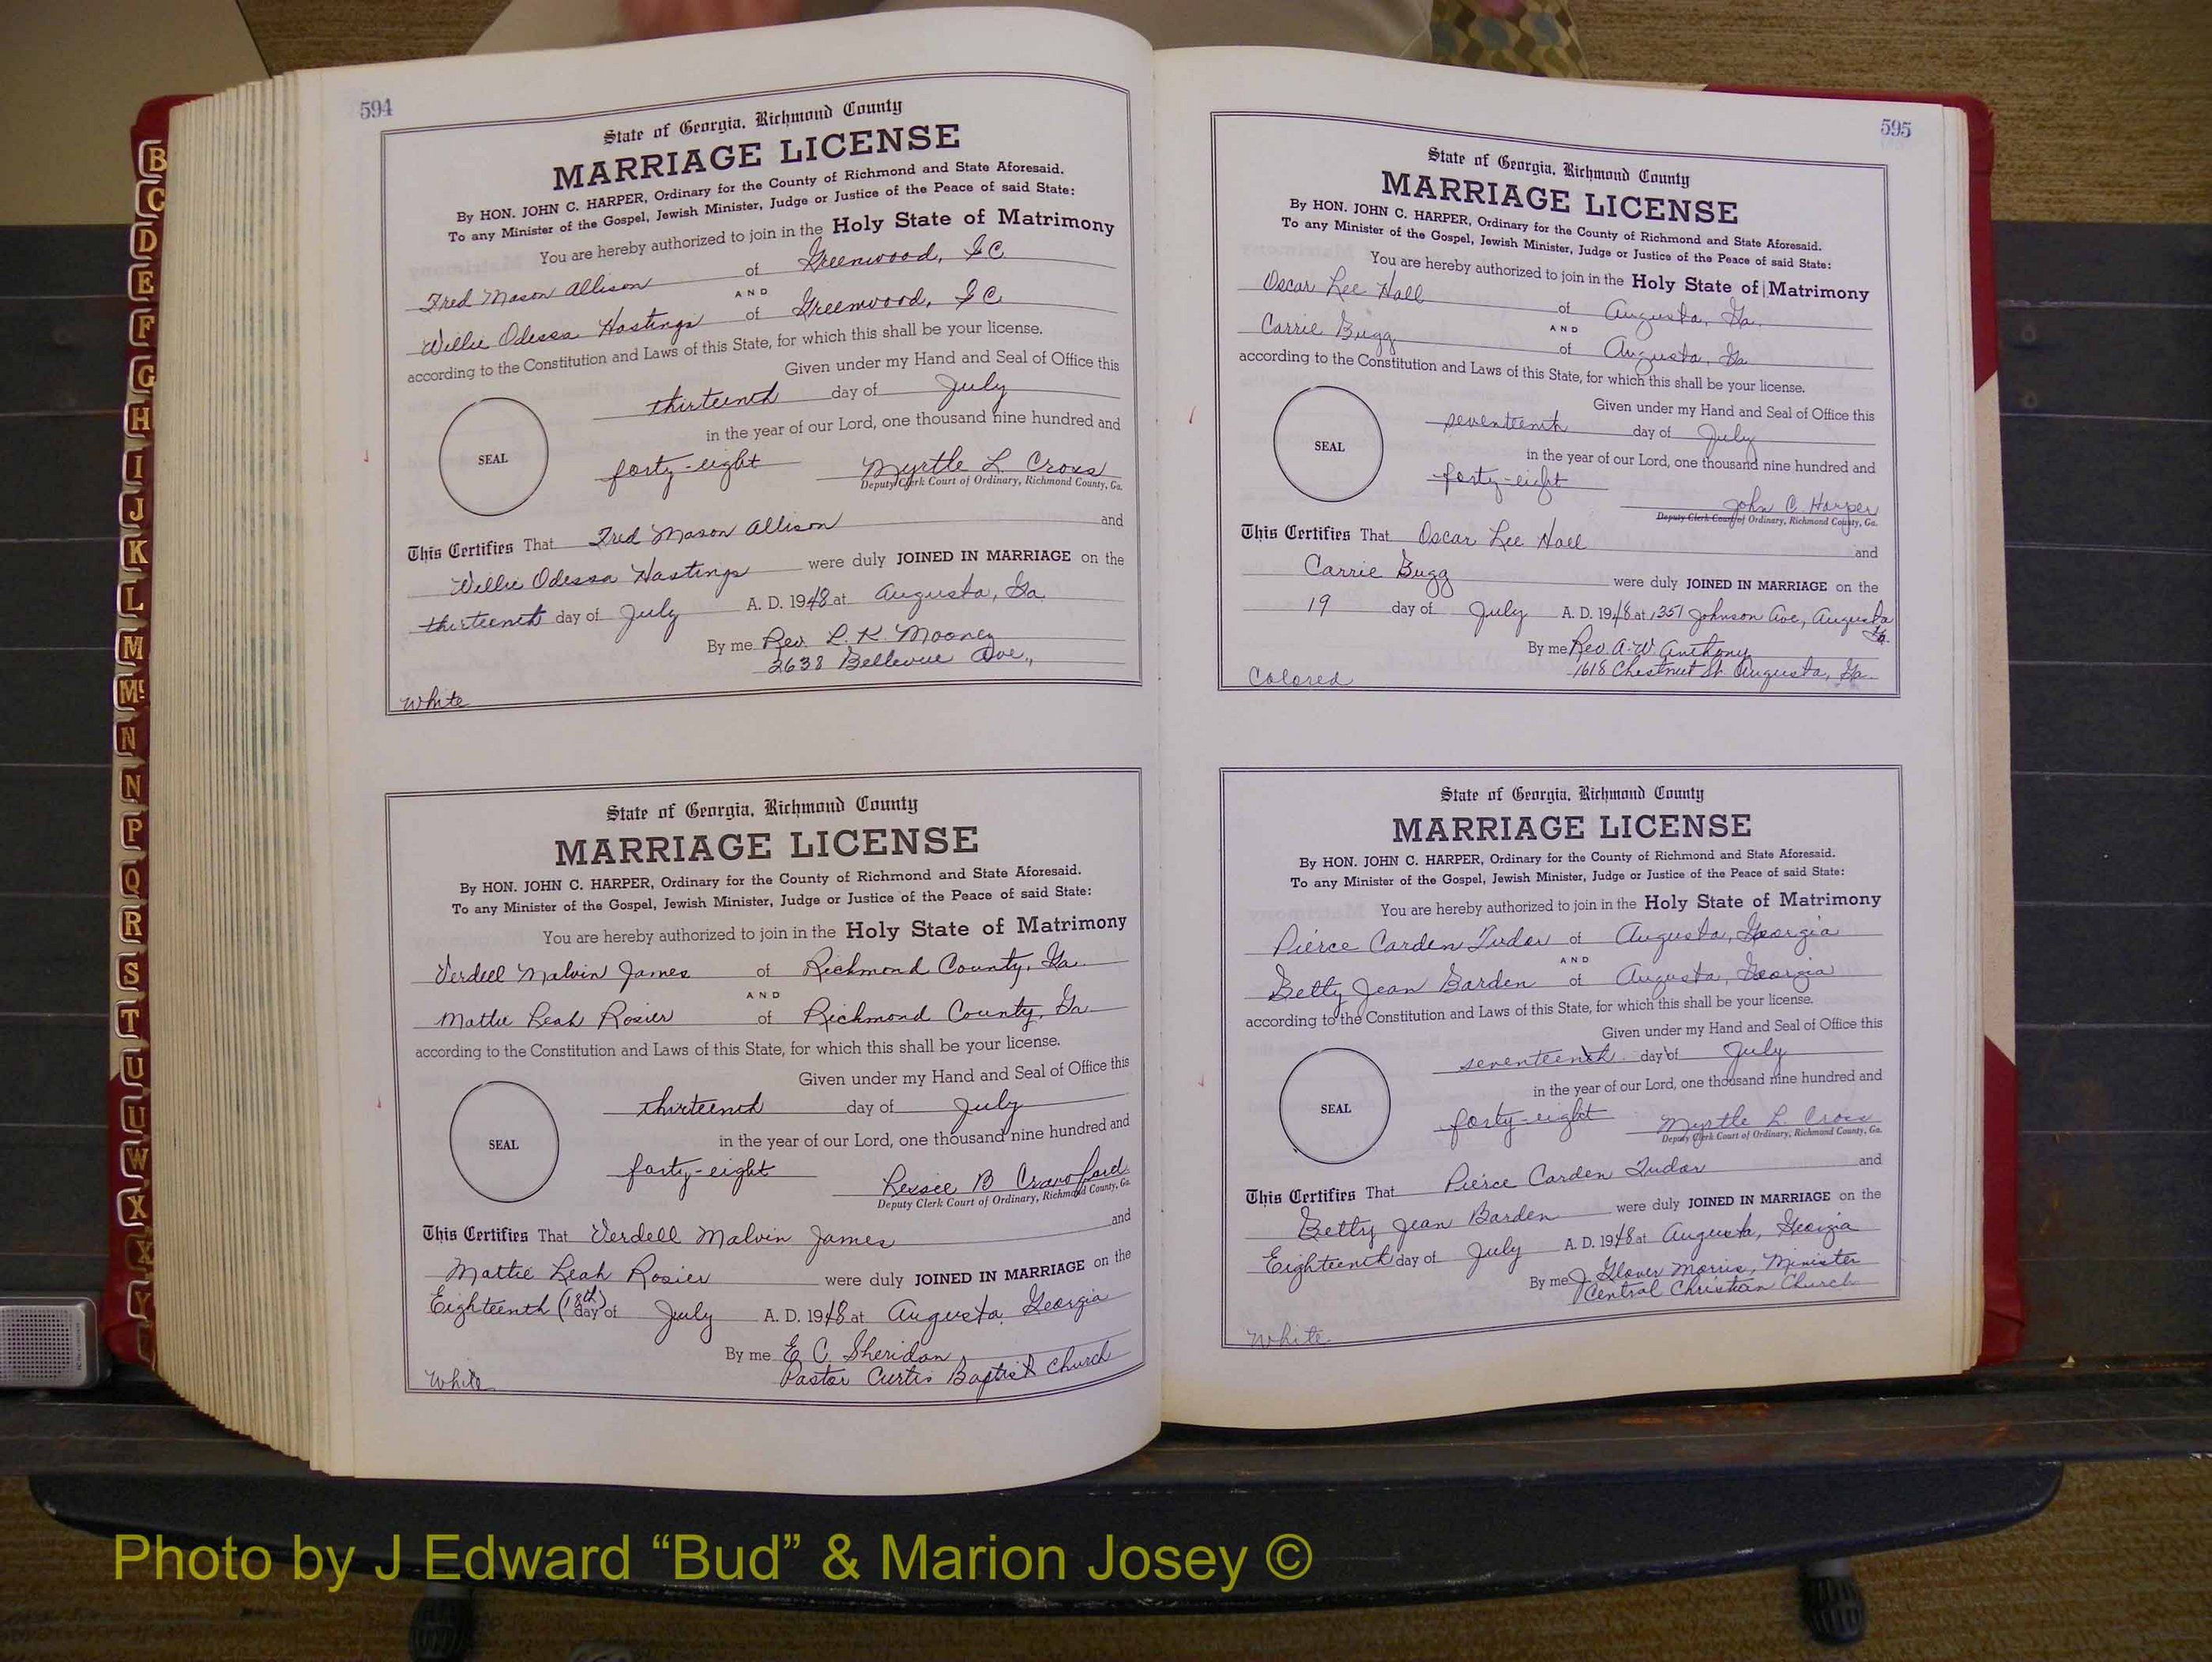 594
State of Georgia, Richmond County
MARRIAGE LICENSE
By HON. JOHN C. HARPER, Ordinary for the County of Richmond and State Aforesaid.
To any Minister of the Gospel, Jewish Minister, Judge or Justice of the Peace of said State:
You are hereby authorized to join in the Holy State of Matrimony
Fred Mason Allison of Greenwood, S C
AND
Willie Odessa Hastings of Greenwood, S C
according to the Constitution and Laws of this State, for which this shall be your license.
Given under my Hand and Seal of Office this
thirteenth day of July
in the year of our Lord, one thousand nine hundred and
SEAL
forty-eight Myrtle L. Cross
Deputy Clerk Court of Ordinary, Richmond County, Ga.
This Certifies That Fred Mason Allison and
Willie Odessa Hastings were duly JOINED IN MARRIAGE on the
thirteenth day of July A. D. 1948 at Augusta, Ga.
By me Rev. L. K. Mooney
2638 Bellevue Ave.,
White
State of Georgia, Richmond County
MARRIAGE LICENSE
By HON. JOHN C. HARPER, Ordinary for the County of Richmond and State Aforesaid.
To any Minister of the Gospel, Jewish Minister, Judge or Justice of the Peace of said State:
You are hereby authorized to join in the Holy State of Matrimony
Verdell Malvin James of Richmond County, Ga.
AND
Mattie Leah Rosier of Richmond County, Ga.
according to the Constitution and Laws of this State, for which this shall be your license.
Given under my Hand and Seal of Office this
thirteenth day of July
in the year of our Lord, one thousand nine hundred and
SEAL
forty-eight B Crawford
Deputy Clerk Court of Ordinary, Richmond County, Ga.
This Certifies That Verdell Malvin James and
Mattie Leah Rosier were duly JOINED IN MARRIAGE on the
Eighteenth (18th) day of July A. D. 1948 at Augusta, Georgia
By me E. C. Sheridan,
Pastor Curtis Baptist Church
White
595
State of Georgia, Richmond County
MARRIAGE LICENSE
By HON. JOHN C. HARPER, Ordinary for the County of Richmond and State Aforesaid.
To any Minister of the Gospel, Jewish Minister, Judge or Justice of the Peace of said State:
You are hereby authorized to join in the Holy State of Matrimony
Oscar Lee Hall of Augusta, Ga.
AND
Carrie Bugg of Augusta, Ga.
according to the Constitution and Laws of this State, for which this shall be your license.
Given under my Hand and Seal of Office this
seventeenth day of July
in the year of our Lord, one thousand nine hundred and
SEAL
forty-eight
John C Harper
Deputy Clerk Court of Ordinary, Richmond County, Ga.
This Certifies That Oscar Lee Hall and
Carrie Bugg were duly JOINED IN MARRIAGE on the
19 day of July A. D. 1948 at 1357 Johnson Ave, Augusta
Ga.
By me Rev. A. W. Anthony
1618 Chestnut St. Augusta, Ga.
Colored
State of Georgia, Richmond County
MARRIAGE LICENSE
By HON. JOHN C. HARPER, Ordinary for the County of Richmond and State Aforesaid.
To any Minister of the Gospel, Jewish Minister, Judge or Justice of the Peace of said State:
You are hereby authorized to join in the Holy State of Matrimony
Pierce Carden Tudor of Augusta, Georgia
AND
Betty Jean Barden of Augusta, Georgia
according to the Constitution and Laws of this State, for which this shall be your license.
Given under my Hand and Seal of Office this
seventeenth day of July
in the year of our Lord, one thousand nine hundred and
SEAL
forty-eight Myrtle L. Cross
Deputy Clerk Court of Ordinary, Richmond County, Ga.
This Certifies That Pierce Carden Tudor and
Betty Jean Barden were duly JOINED IN MARRIAGE on the
Eighteenth day of July A. D. 1948 at Augusta, Georgia
By me J. Glover Morris, Minister
Central Christian Church
White
B
C
D
E
F
G
H
I
J
K
L
M
Mc
N
N
P
Q
R
S
T
U
U
W
X
X
Y
Photo by J Edward “Bud” & Marion Josey ©